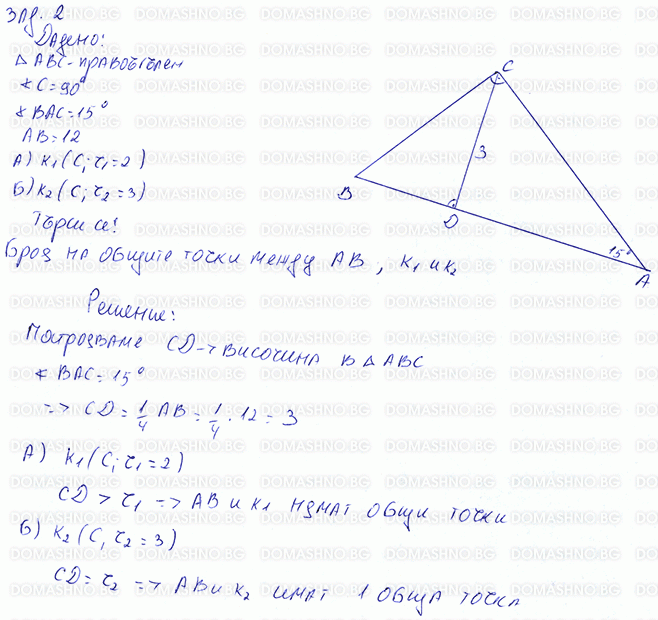 Зад. 2
Дадено:
△ ABC - правоъгълен
∢ C = 90°
∢ BAC = 15°
AB = 12
А) K₁ (C; r₁ = 2)
Б) K₂ (C; r₂ = 3)
Търси се!
Броя на общите точки между AB, K₁ и K₂
C
3
B
D
15°
A
Решение:
Построяваме CD → височина в △ ABC
∢ BAC = 15°
=> CD = 1/4 AB = 1/4 . 12 = 3
А) K₁ (C; r₁ = 2)
CD > r₁ => AB и K₁ нямат общи точки
Б) K₂ (C, r₂ = 3)
CD = r₂ => AB и K₂ имат 1 обща точка
DOMASHNO.BG